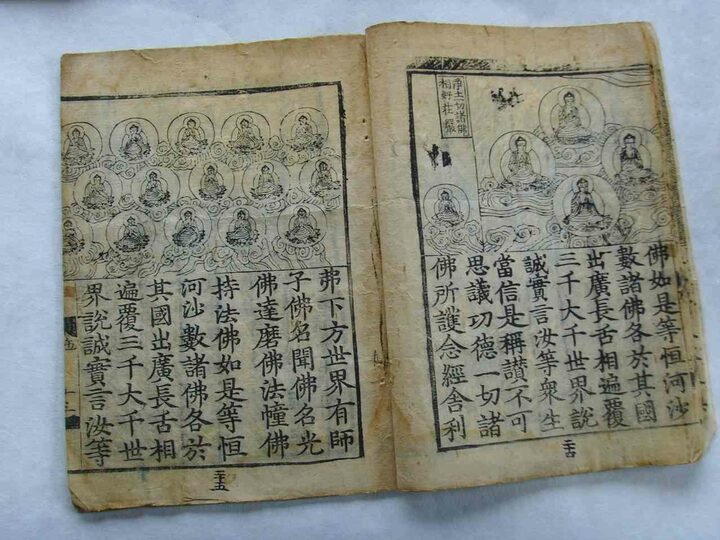 淨土一切諸佛
相好莊嚴
佛如是等恒河沙
數諸佛各於其國
出廣長舌相遍覆
三千大千世界說
誠實言汝等衆生
當信是稱讚不可
思議功德一切諸
佛所護念經舍利
弗下方世界有師
子佛名聞佛名光
佛達磨佛法幢佛
持法佛如是等恒
河沙數諸佛各於
其國出廣長舌相
遍覆三千大千世
界說誠實言汝等